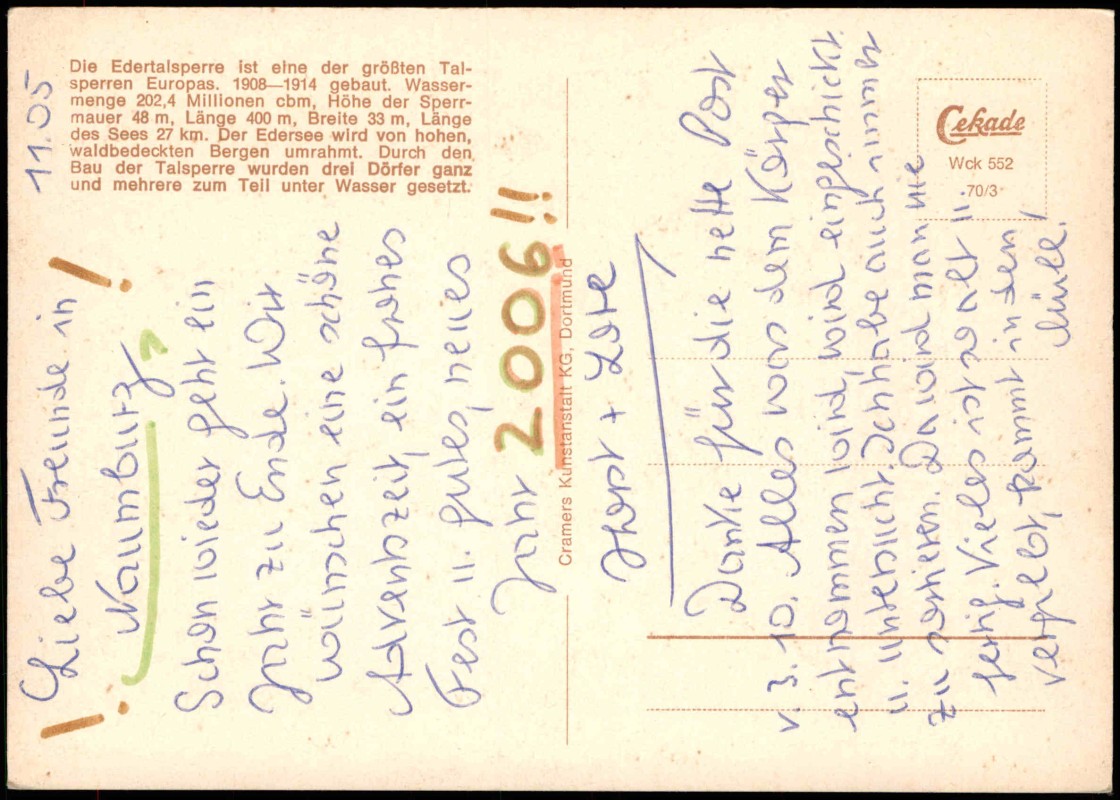 Die Edertalsperre ist eine der größten Tal-
sperren Europas. 1908—1914 gebaut. Wasser-
menge 202,4 Millionen cbm, Höhe der Sperr-
mauer 48 m, Länge 400 m, Breite 33 m, Länge
des Sees 27 km. Der Edersee wird von hohen,
waldbedeckten Bergen umrahmt. Durch den
Bau der Talsperre wurden drei Dörfer ganz
und mehrere zum Teil unter Wasser gesetzt.
11.05
Liebe Freunde in
! Naumburg, !
Schon wieder geht ein
Jahr zu Ende. Wir
wünschen eine schöne
Adventszeit, ein frohes
Fest u. gutes, neues
Jahr 2006!!
Horst + Lore
Cramers Kunstanstalt KG, Dortmund
Cekade
Wck 552
70/3
Danke für die nette Post
v. 3.10. Alles was dem Körper
entnommen wird, wird eingeschickt
u. untersucht. Ich habe auch immer
zu Da wird man nie
fertig. Vieles ist so alt u.
vergilbt, kommt in den
Müll!